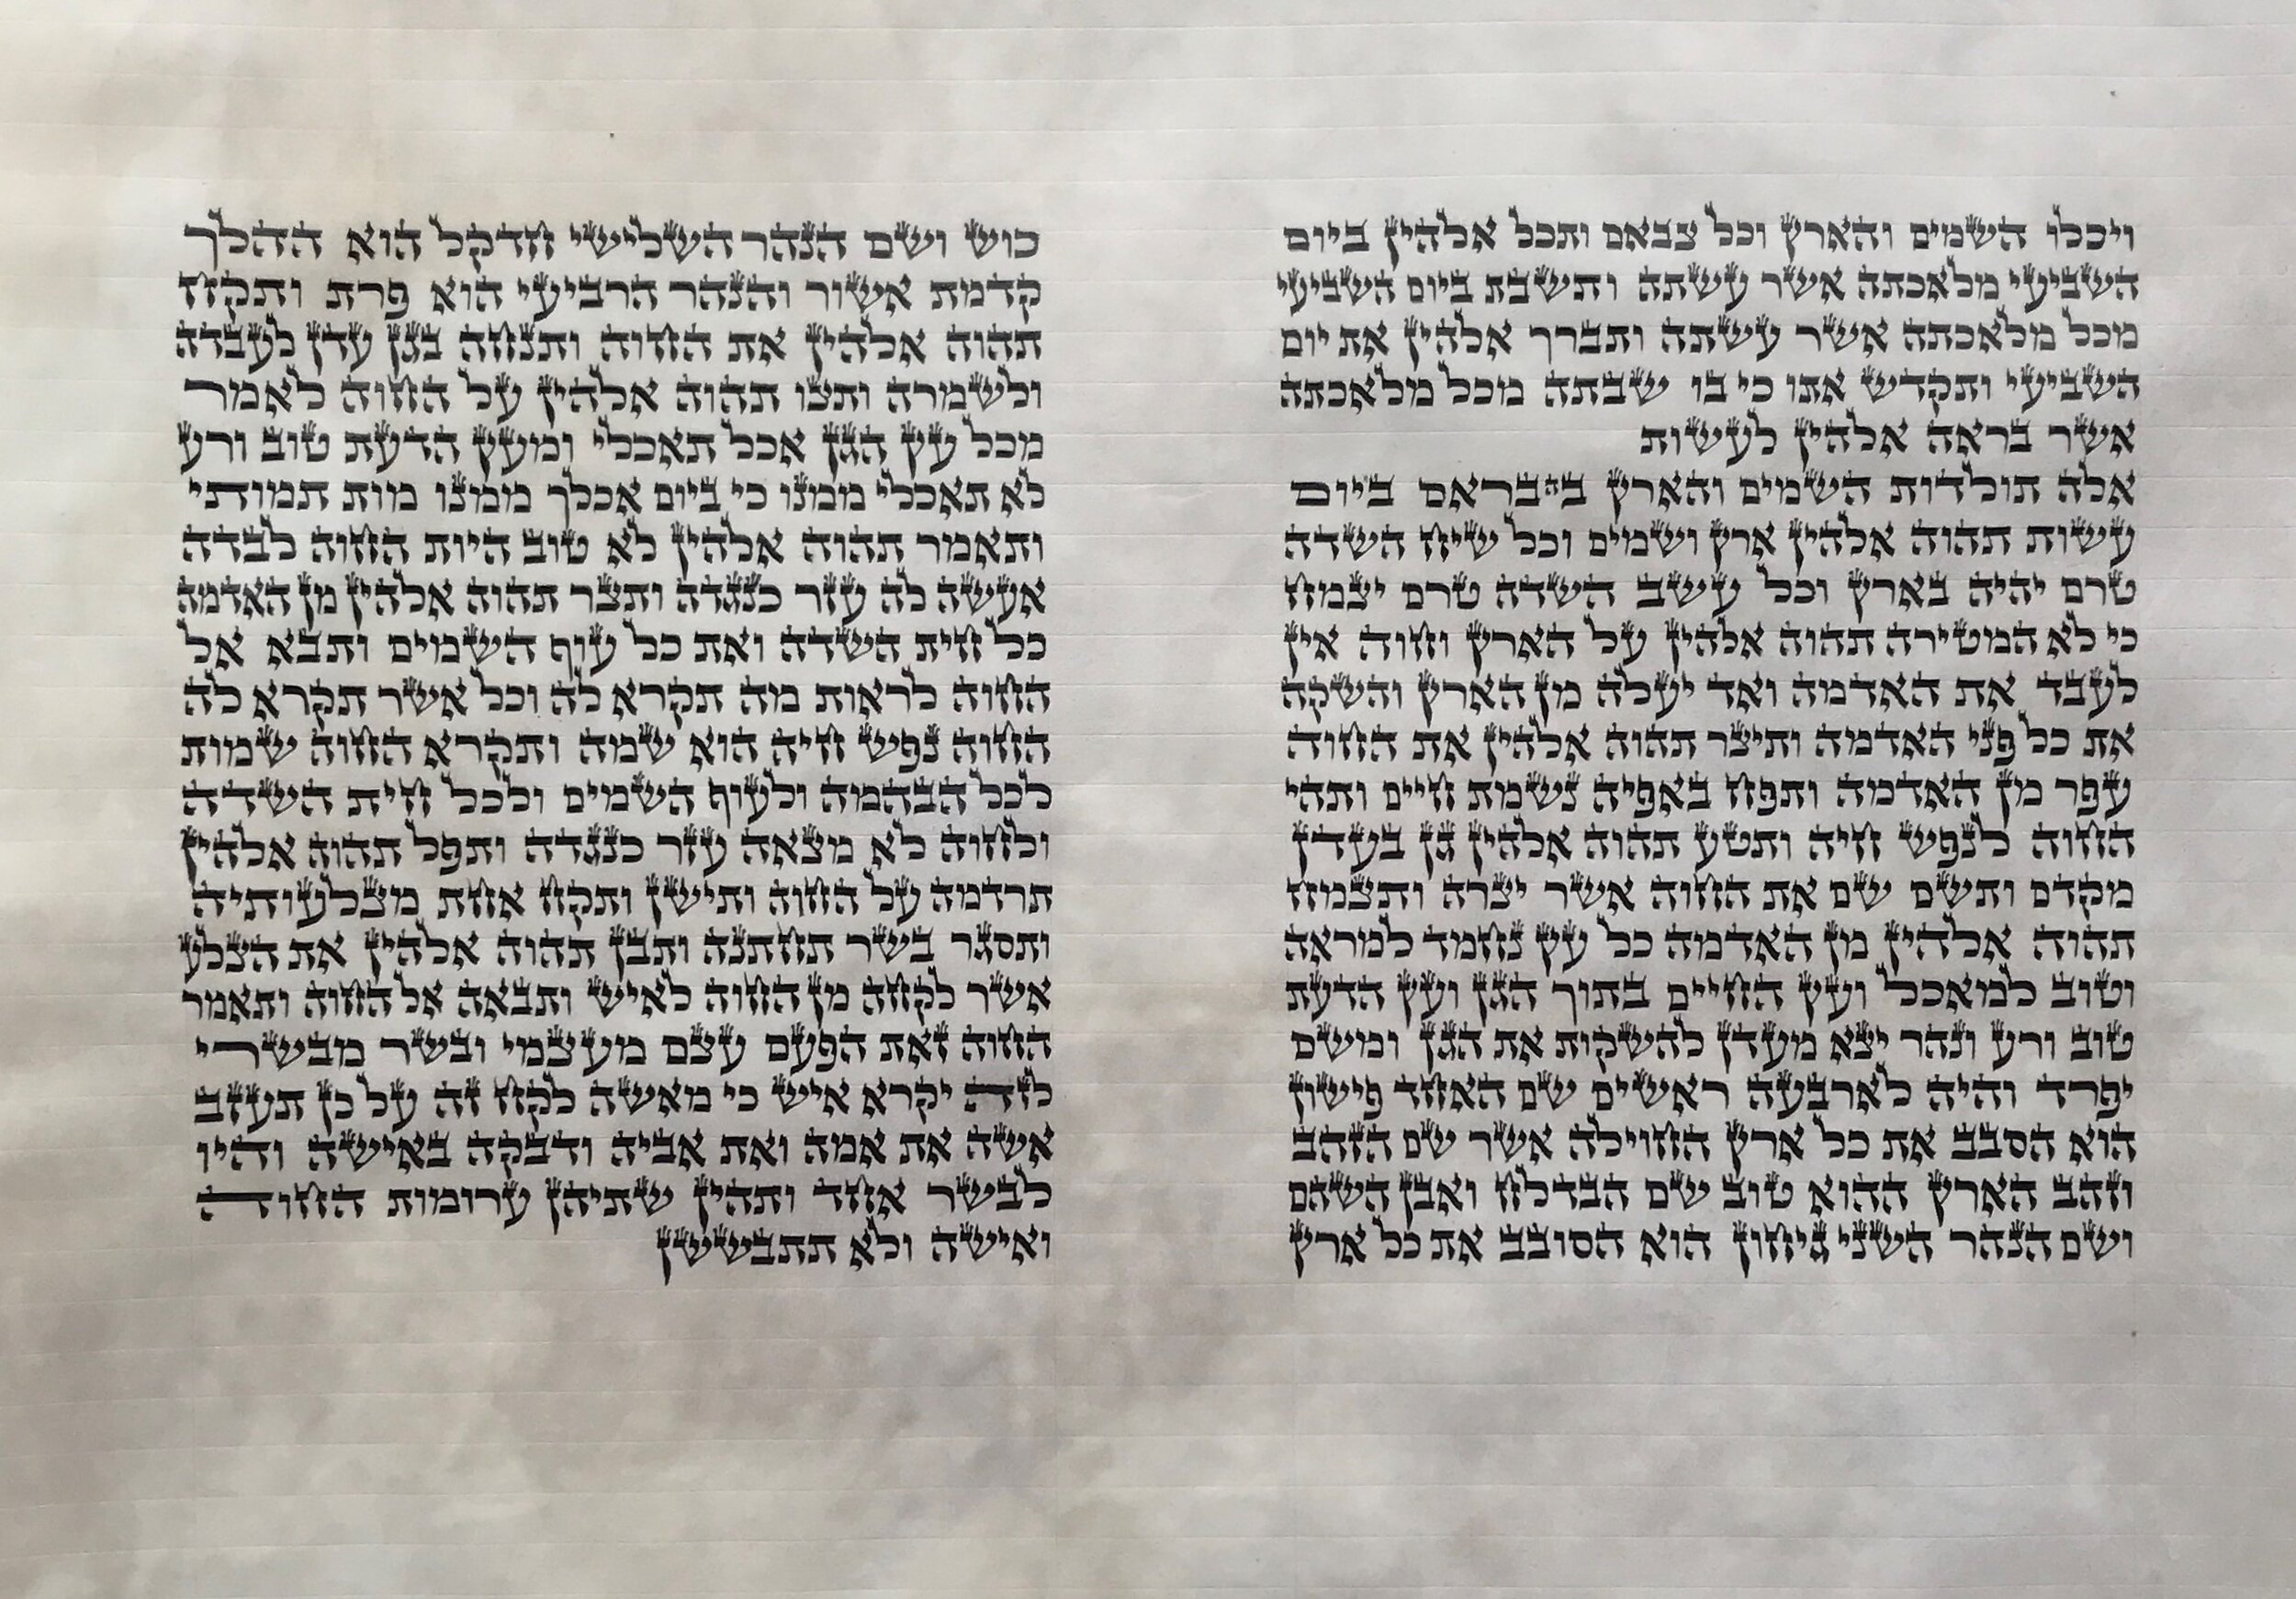 ויכלו השמים והארץ וכל צבאם ותכל אלהין ביום
השביעי מלאכתה אשר עשתה ותשבת ביום השביעי
מכל מלאכתה אשר עשתה ותברך אלהין את יום
השביעי ותקדש אתו כי בו שבתה מכל מלאכתה
אשר בראה אלהין לעשות
אלה תולדות השמים והארץ בהבראם ביום
עשות תהוה אלהין ארץ ושמים וכל שיח השדה
טרם יהיה בארץ וכל עשב השדה טרם יצמח
כי לא המטירה תהוה אלהין על הארץ וחוה אין
לעבד את האדמה ואד יעלה מן הארץ והשקה
את כל פני האדמה ותיצר תהוה אלהין את החוה
עפר מן האדמה ותפח באפיה נשמת חיים ותהי
החוה לנפש חיה ותטע תהוה אלהין גן בעדן
מקדם ותשם שם את החוה אשר יצרה ותצמח
תהוה אלהין מן האדמה כל עץ נחמד למראה
וטוב למאכל ועץ החיים בתוך הגן ועץ הדעת
טוב ורע ונהר יצא מעדן להשקות את הגן ומשם
יפרד והיה לארבעה ראשים שם האחד פישון
הוא הסבב את כל ארץ החוילה אשר שם הזהב
וזהב הארץ ההוא טוב שם הבדלח ואבן השהם
ושם הנהר השני גיחון הוא הסובב את כל ארץ
כוש ושם הנהר השלישי חדקל הוא ההלך
קדמת אשור והנהר הרביעי הוא פרת ותקח
תהוה אלהין את החוה ותנחה בגן עדן לעבדה
ולשמרה ותצו תהוה אלהין על החוה לאמר
מכל עץ הגן אכל תאכלי ומעץ הדעת טוב ורע
לא תאכלי ממנו כי ביום אכלך ממנו מות תמותי
ותאמר תהוה אלהין לא טוב היות החוה לבדה
אעשה לה עזר כנגדה ותצר תהוה אלהין מן האדמה
כל חית השדה ואת כל עוף השמים ותבא אל
החוה לראות מה תקרא לה וכל אשר תקרא לה
החוה נפש חיה הוא שמה ותקרא החוה שמות
לכל הבהמה ולעוף השמים ולכל חית השדה
ולחוה לא מצאה עזר כנגדה ותפל תהוה אלהין
תרדמה על החוה ותישן ותקח אחת מצלעותיה
ותסגר בשר תחתנה ותבן תהוה אלהין את הצלע
אשר לקחה מן החוה לאיש ותבאה אל החוה ותאמר
החוה זאת הפעם עצם מעצמי ובשר מבשרי
לזה יקרא איש כי מאשה לקח זה על כן תעזב
אשה את אמה ואת אביה ודבקה באישה והיו
לבשר אחד ותהין שתיהן ערומות החוה
ואישה ולא תתבששן